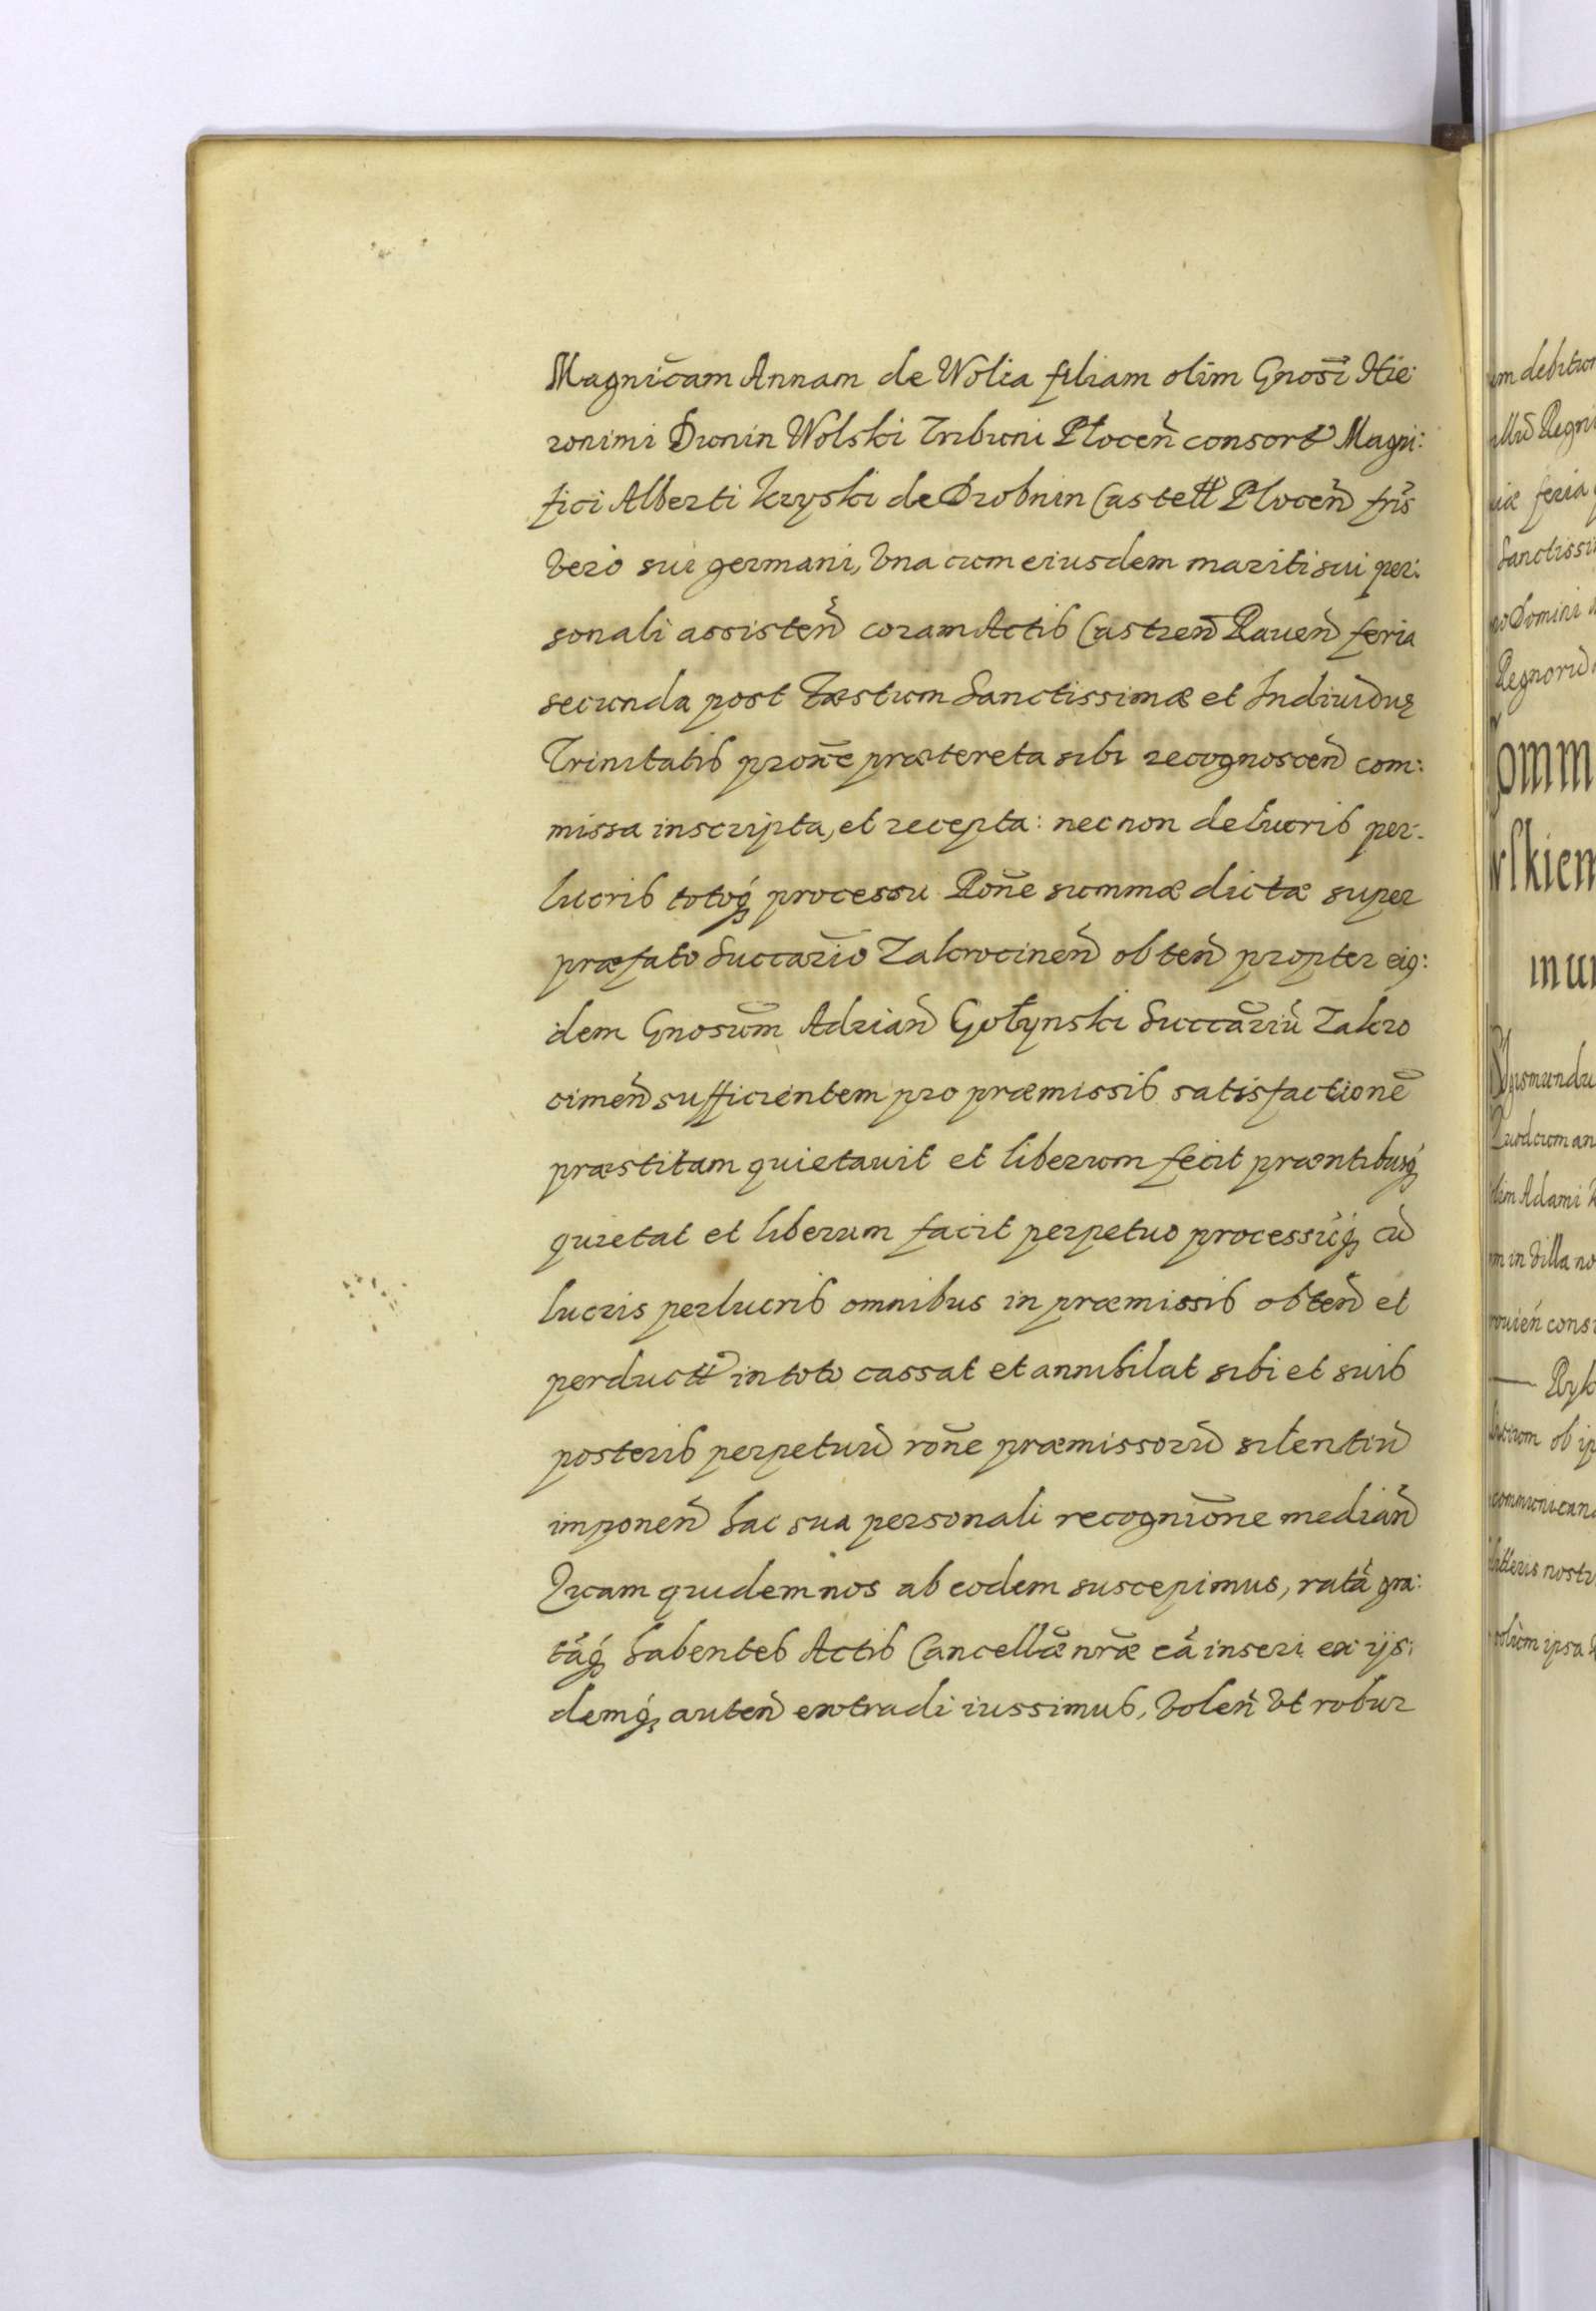 Magnicam Annam de Wolia filiam olim Gnosi Hie:
ronimi Dunin Wolski Tribuni Plocen̄ consort Magni:
fici Alberti Kryski de Drobnin Castell Plocen̄ fris
Vero sui germani, Vna cum eiusdem mariti sui per:
sonali assisten̄ coram Actis Castren̄ Rauen̄ feria
secunda post Festum Sanctissimæ et Indiuiduę
Trinitatis prone prætereta sibi recognoscen̄ com:
missa inscripta, et recepta: nec non de lucris per:
lucris totoq́ꝫ processu Rōne summæ dictæ super
præfato Succario Zakrocinen̄ obten̄ propter eiꝰ:
dem Gnosum Adrian̄ Gołynski Succariū Zakro
cimen̄ sufficientem pro præmissis satisfactionē
præstitam quietauit et liberum fecit præntibusq́ꝫ
quietat et liberum facit perpetuo processūq́ꝫ cū
lucris perlucris omnibus in præmissis obten̄ et
perductt in toto cassat et annihilat sibi et suis
posteris perpetuū rōne præmissorū silentiū
imponen̄ hac sua personali recognione median̄
Quam quidem nos ab eodem suscepimus, ratā gra:
tāq́ꝫ habentes Actis Cancellæ nræ eā inseri ex ijs:
demq́ꝫ auten̄ extradi iussimus, Volen̄ Vt robur